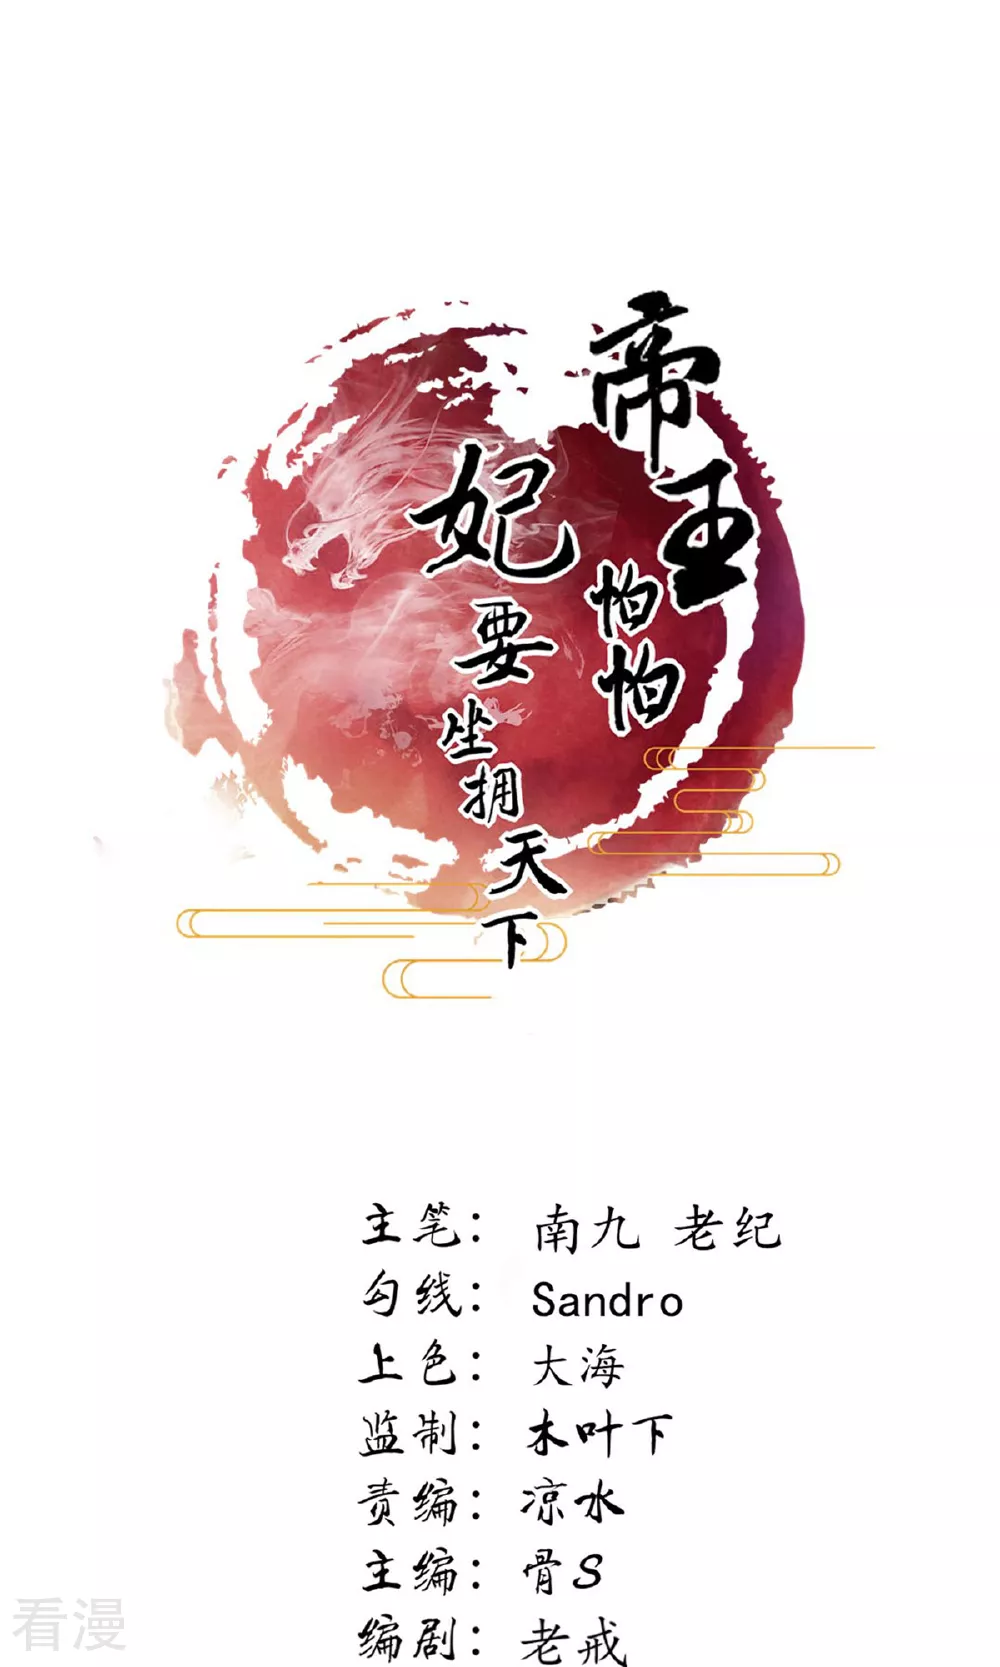 帝王怕怕
妃要坐拥天下
主笔： 南九 老纪
勾线： Sandro
上色： 大海
监制： 木叶下
责编： 凉水
主编： 骨S
编剧： 老戒
看漫